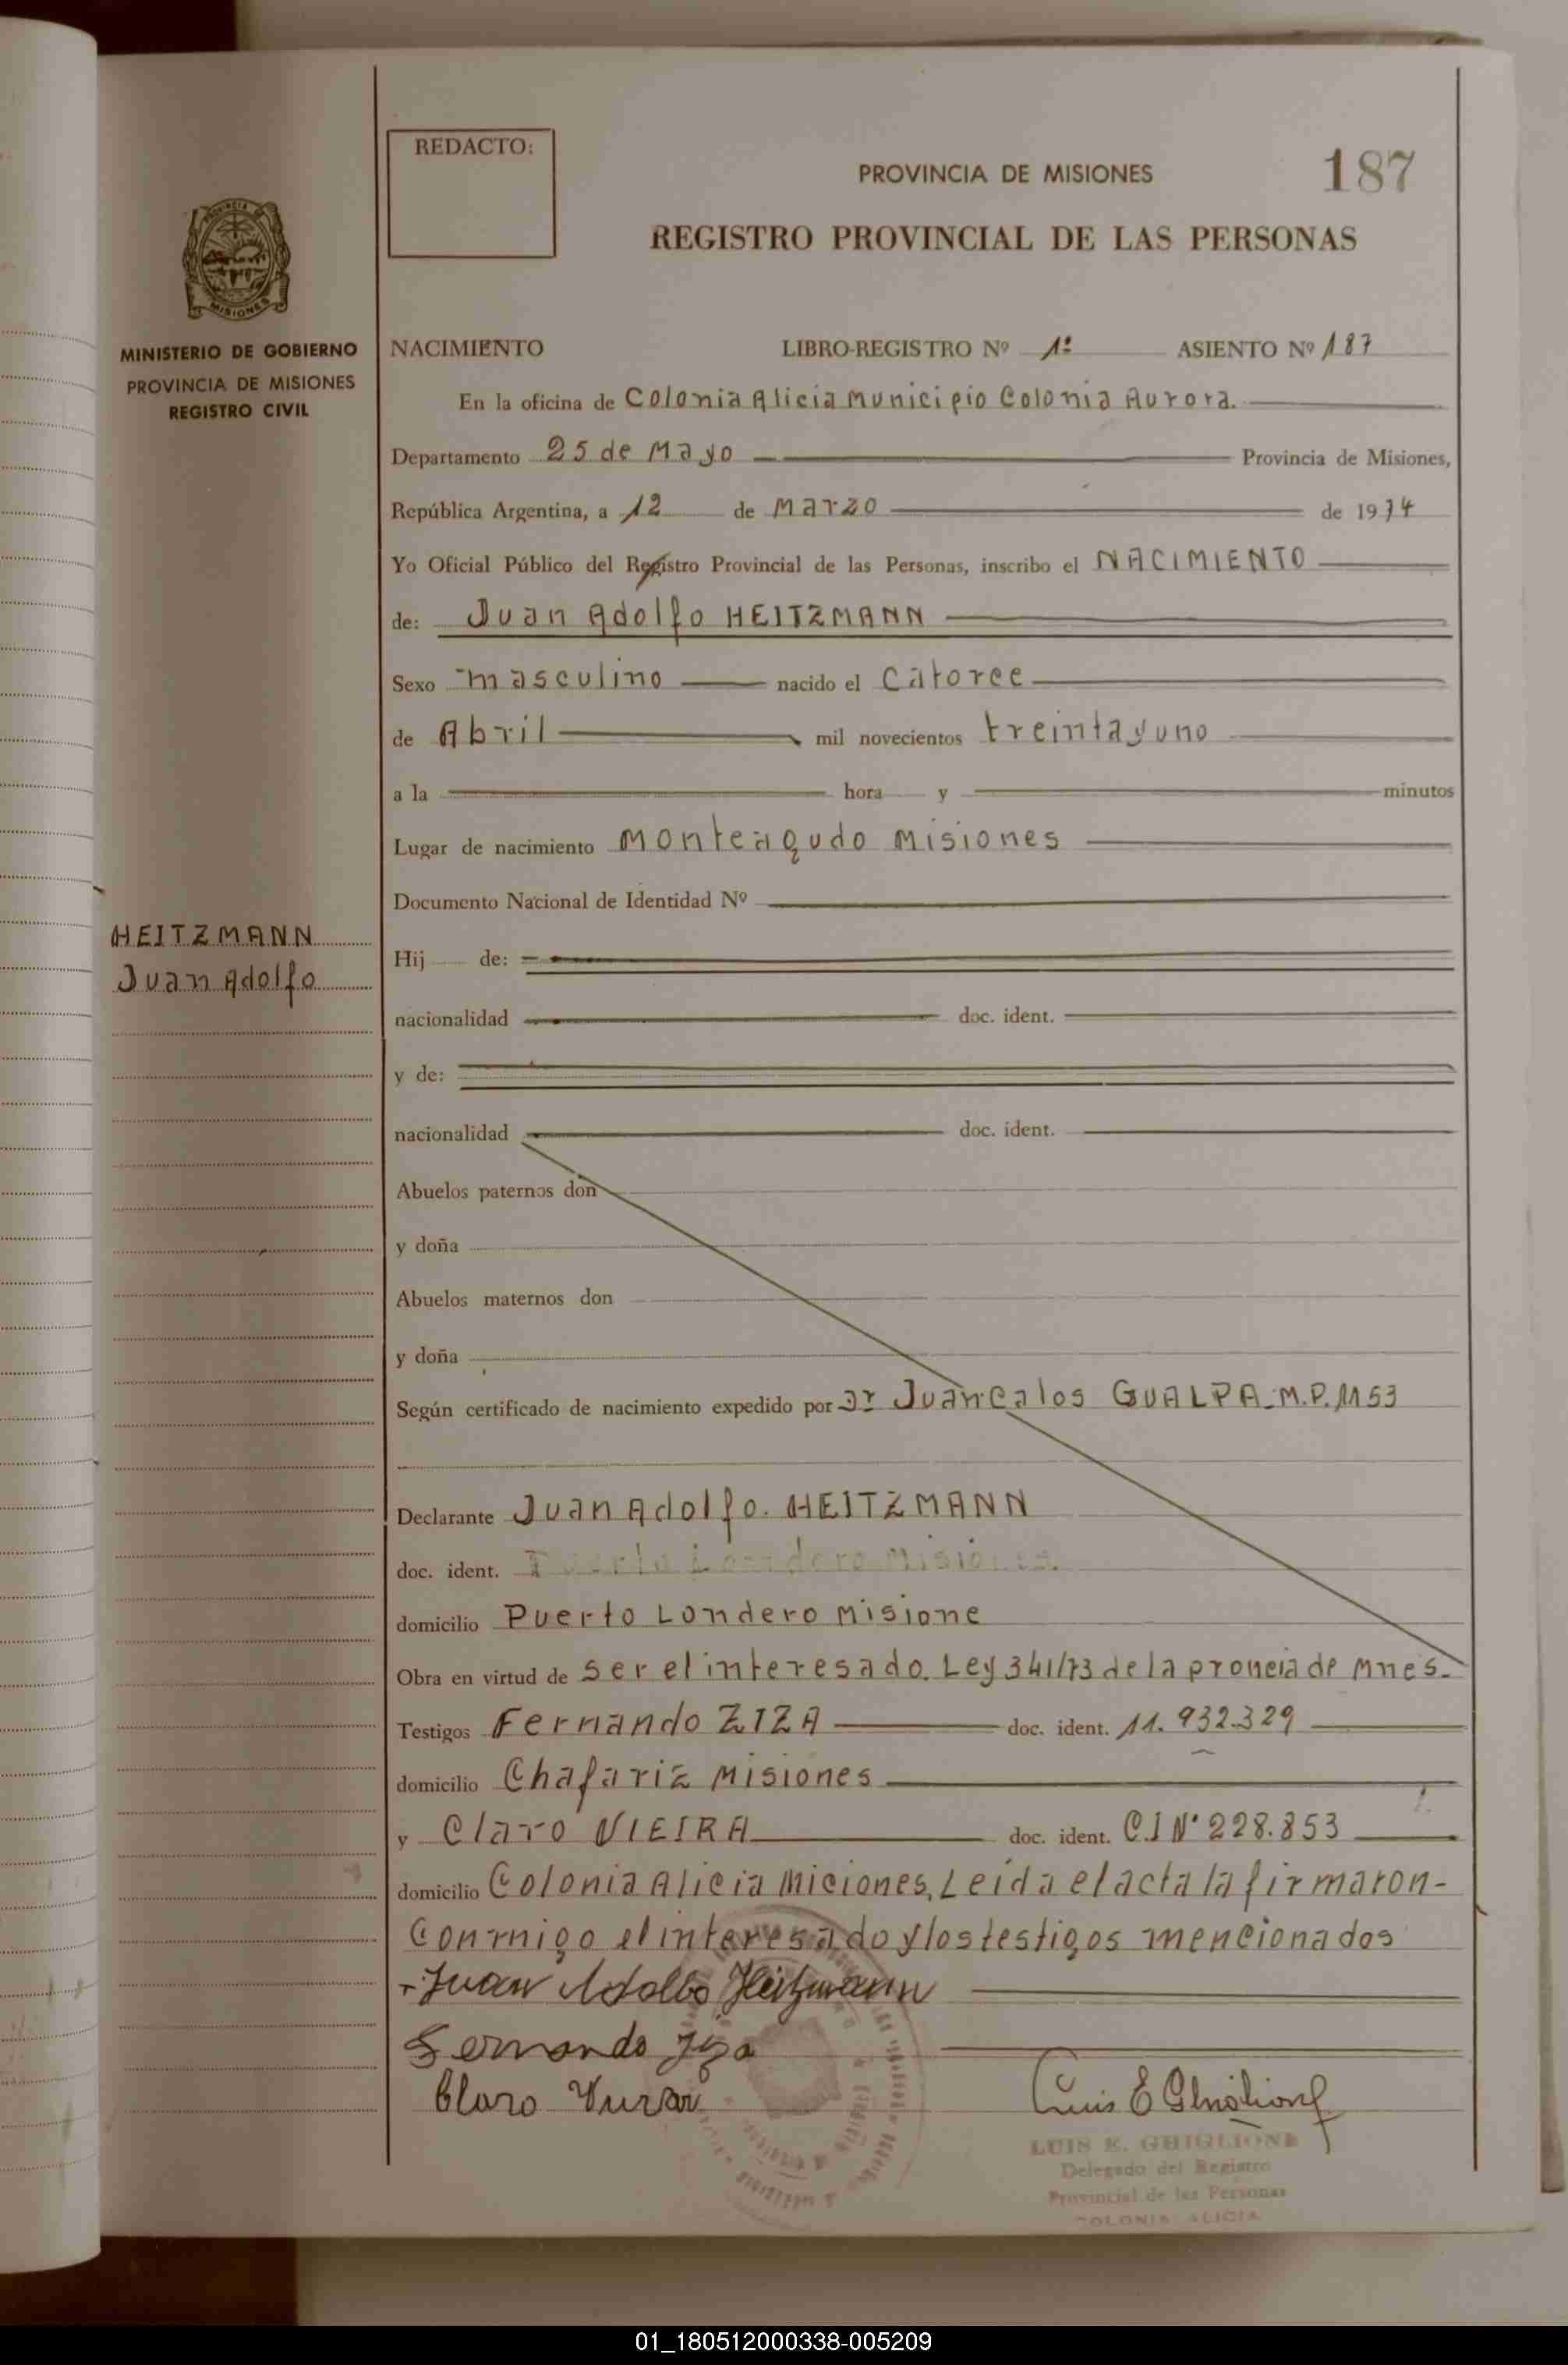 REDACTO:
PROVINCIA DE MISIONES
187
REGISTRO PROVINCIAL DE LAS PERSONAS
PROVINCIA DE
MISIONES
MINISTERIO DE GOBIERNO
PROVINCIA DE MISIONES
REGISTRO CIVIL
NACIMIENTO LIBRO-REGISTRO Nº 1º ASIENTO Nº 187
En la oficina de Colonia Alicia Municipio Colonia Aurora.
Departamento 25 de Mayo Provincia de Misiones,
República Argentina, a 12 de Marzo de 1974
Yo Oficial Público del Registro Provincial de las Personas, inscribo el NACIMIENTO
de: Juan Adolfo HEITZMANN
Sexo masculino nacido el Catorce
de Abril mil novecientos treinta y uno
a la hora y minutos
Lugar de nacimiento Monteagudo Misiones
Documento Nacional de Identidad Nº
HEITZMANN
Juan Adolfo
Hij de:
nacionalidad doc. ident.
y de:
nacionalidad doc. ident.
Abuelos paternos don
y doña
Abuelos maternos don
y doña
Según certificado de nacimiento expedido por Dr Juan Calos GUALPA. M.P. 1153
Declarante Juan Adolfo. HEITZMANN
doc. ident. Puerto Londero Misiones.
domicilio Puerto Londero Misione
Obra en virtud de ser el interesado. Ley 341/73 de la proncia de Mnes.
Testigos Fernando ZIZA doc. ident. 11.932.329
domicilio Chafariz Misiones
y Claro VIEIRA doc. ident. C.I Nº 228.853
domicilio Colonia Alicia Miciones, Leida el acta la firmaron-
Conmigo el interesado y los testigos mencionados
Juan Adolfo Heitzmann
Fernando Ziza
Claro
Luis E Ghiglione
LUIS E. GHIGLIONE
Delegado del Registro
Provincial de las Personas
COLONIA ALICIA
01_180512000338-005209